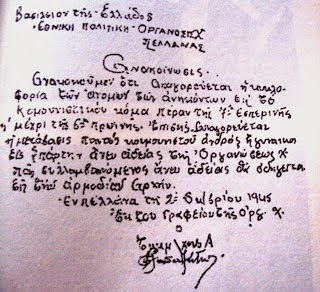 Βασίλειον της Ελλάδος
Εθνική Πολιτική Οργάνωσις Χ
Πελλάνας
Ανακοίνωσις
Ανακοινούμεν ότι απαγορεύεται η κυκλο
φορία των ατόμων των ανηκόντων εις το
Κομουνιστικόν κόμα πέραν της 7ης Εσπερινής
μέχρι της 6ης πρωινής. Επίσης απαγορεύεται
η μετάβασις παντός κομουνιστού ανδρός ή γυναικός
εις άνευ αδείας της Οργανώσεως Χ
πας συλλαμβανόμενος άνευ αδείας θα οδηγείται
εις την αρμοδίαν Αρχήν.
Εν Πελλάνα τη 2α 1945
Εκ του Γραφείου της Οργ. Χ.